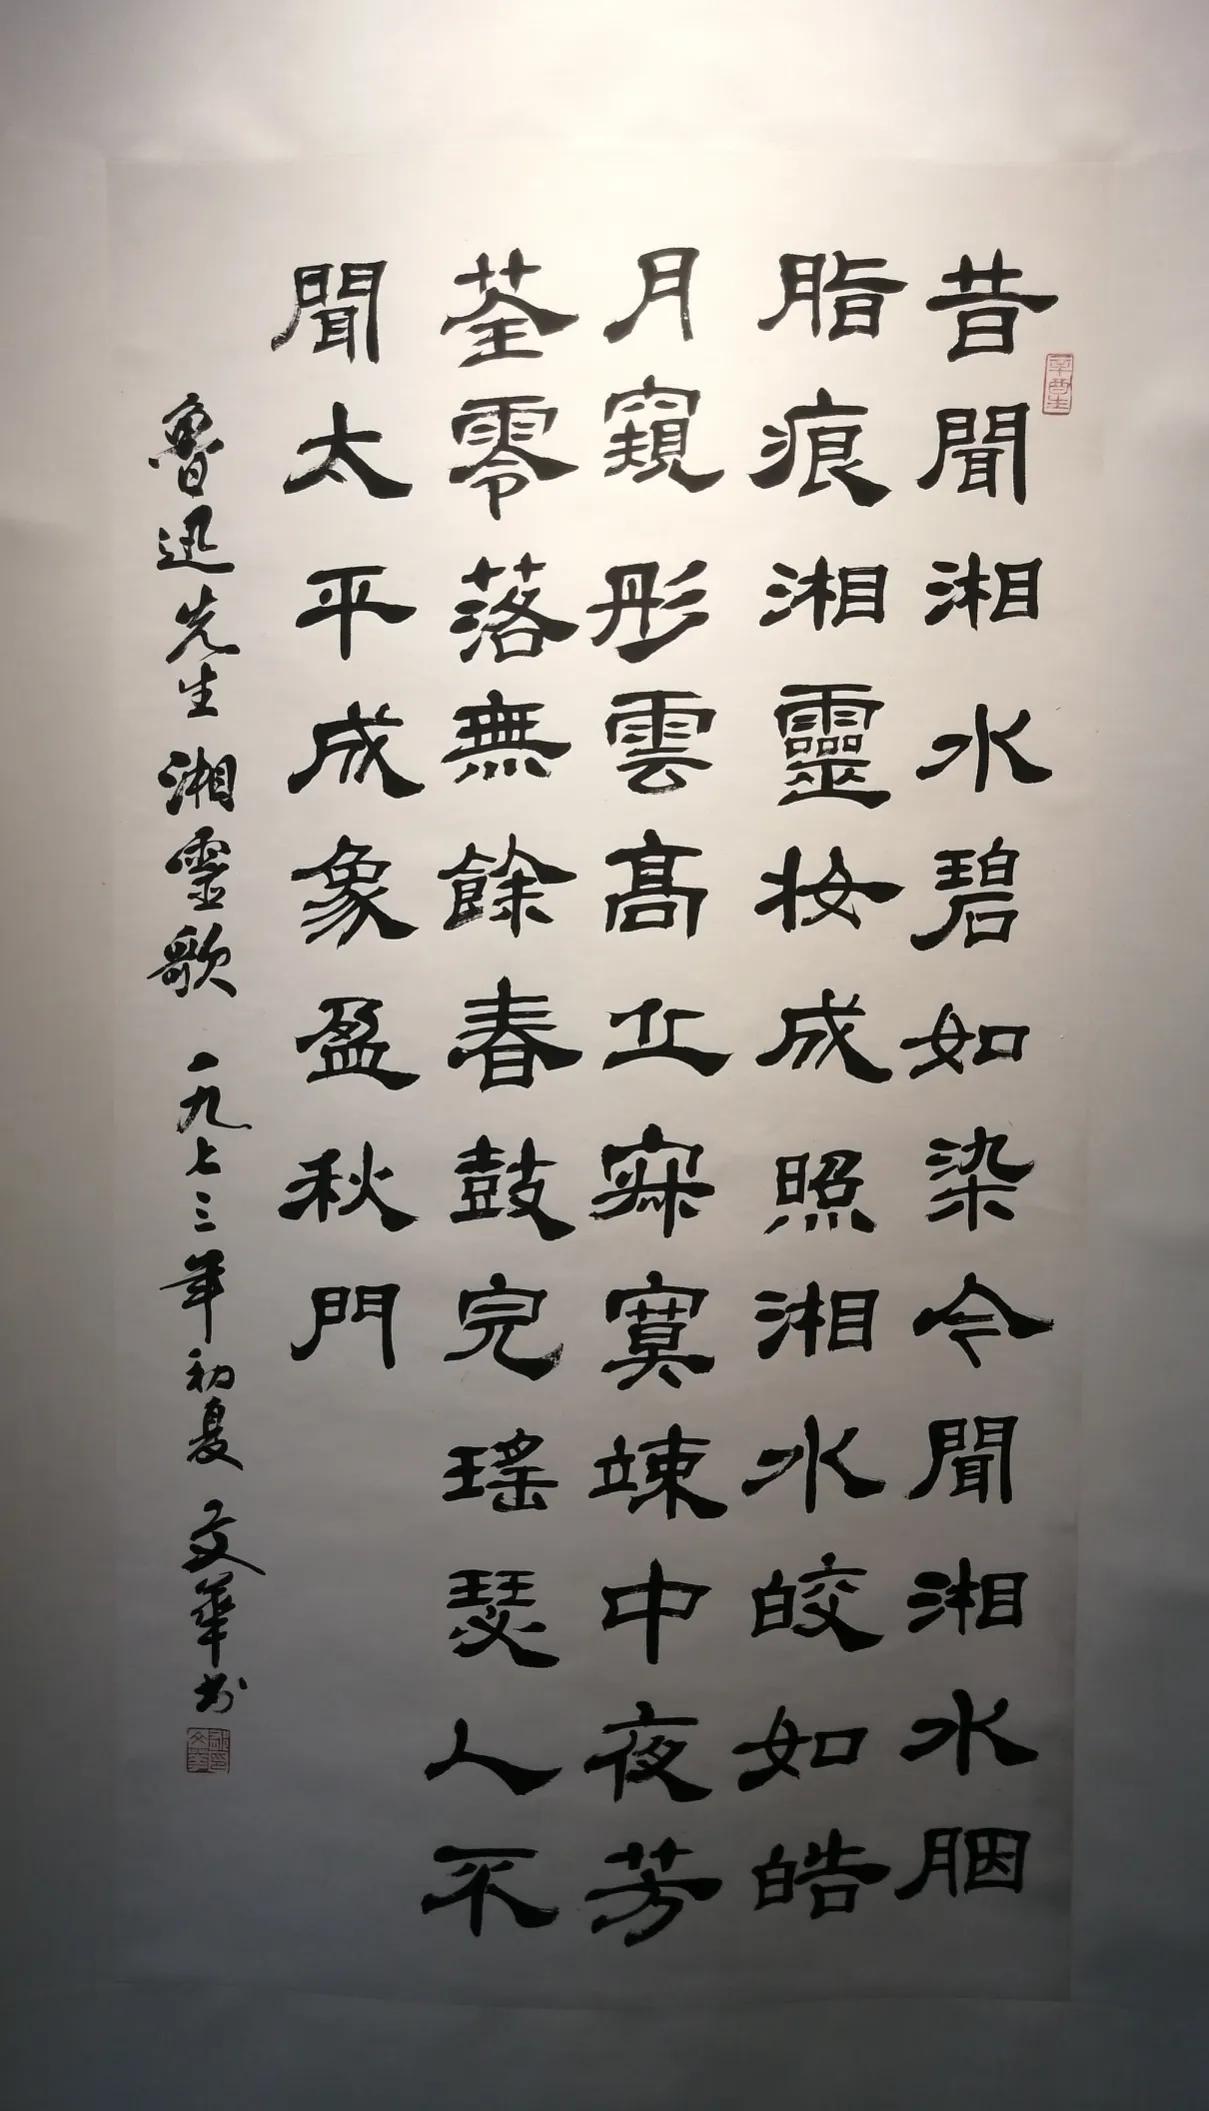 昔聞湘水碧如染令聞湘水胭
脂痕湘靈妆成照湘水皎如皓
月窺彤雲高丘寂寞竦中夜芳
荃零落無餘春鼓完瑤瑟人不
聞太平成象盈秋門
魯迅先生湘靈歌 一九七三年初夏 文華书
辛酉生